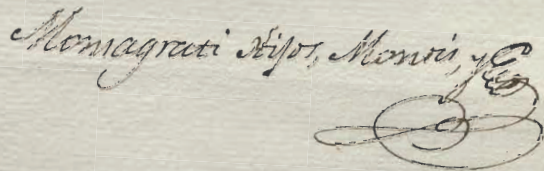 Momagrati Hijos, Monsis, y Cia